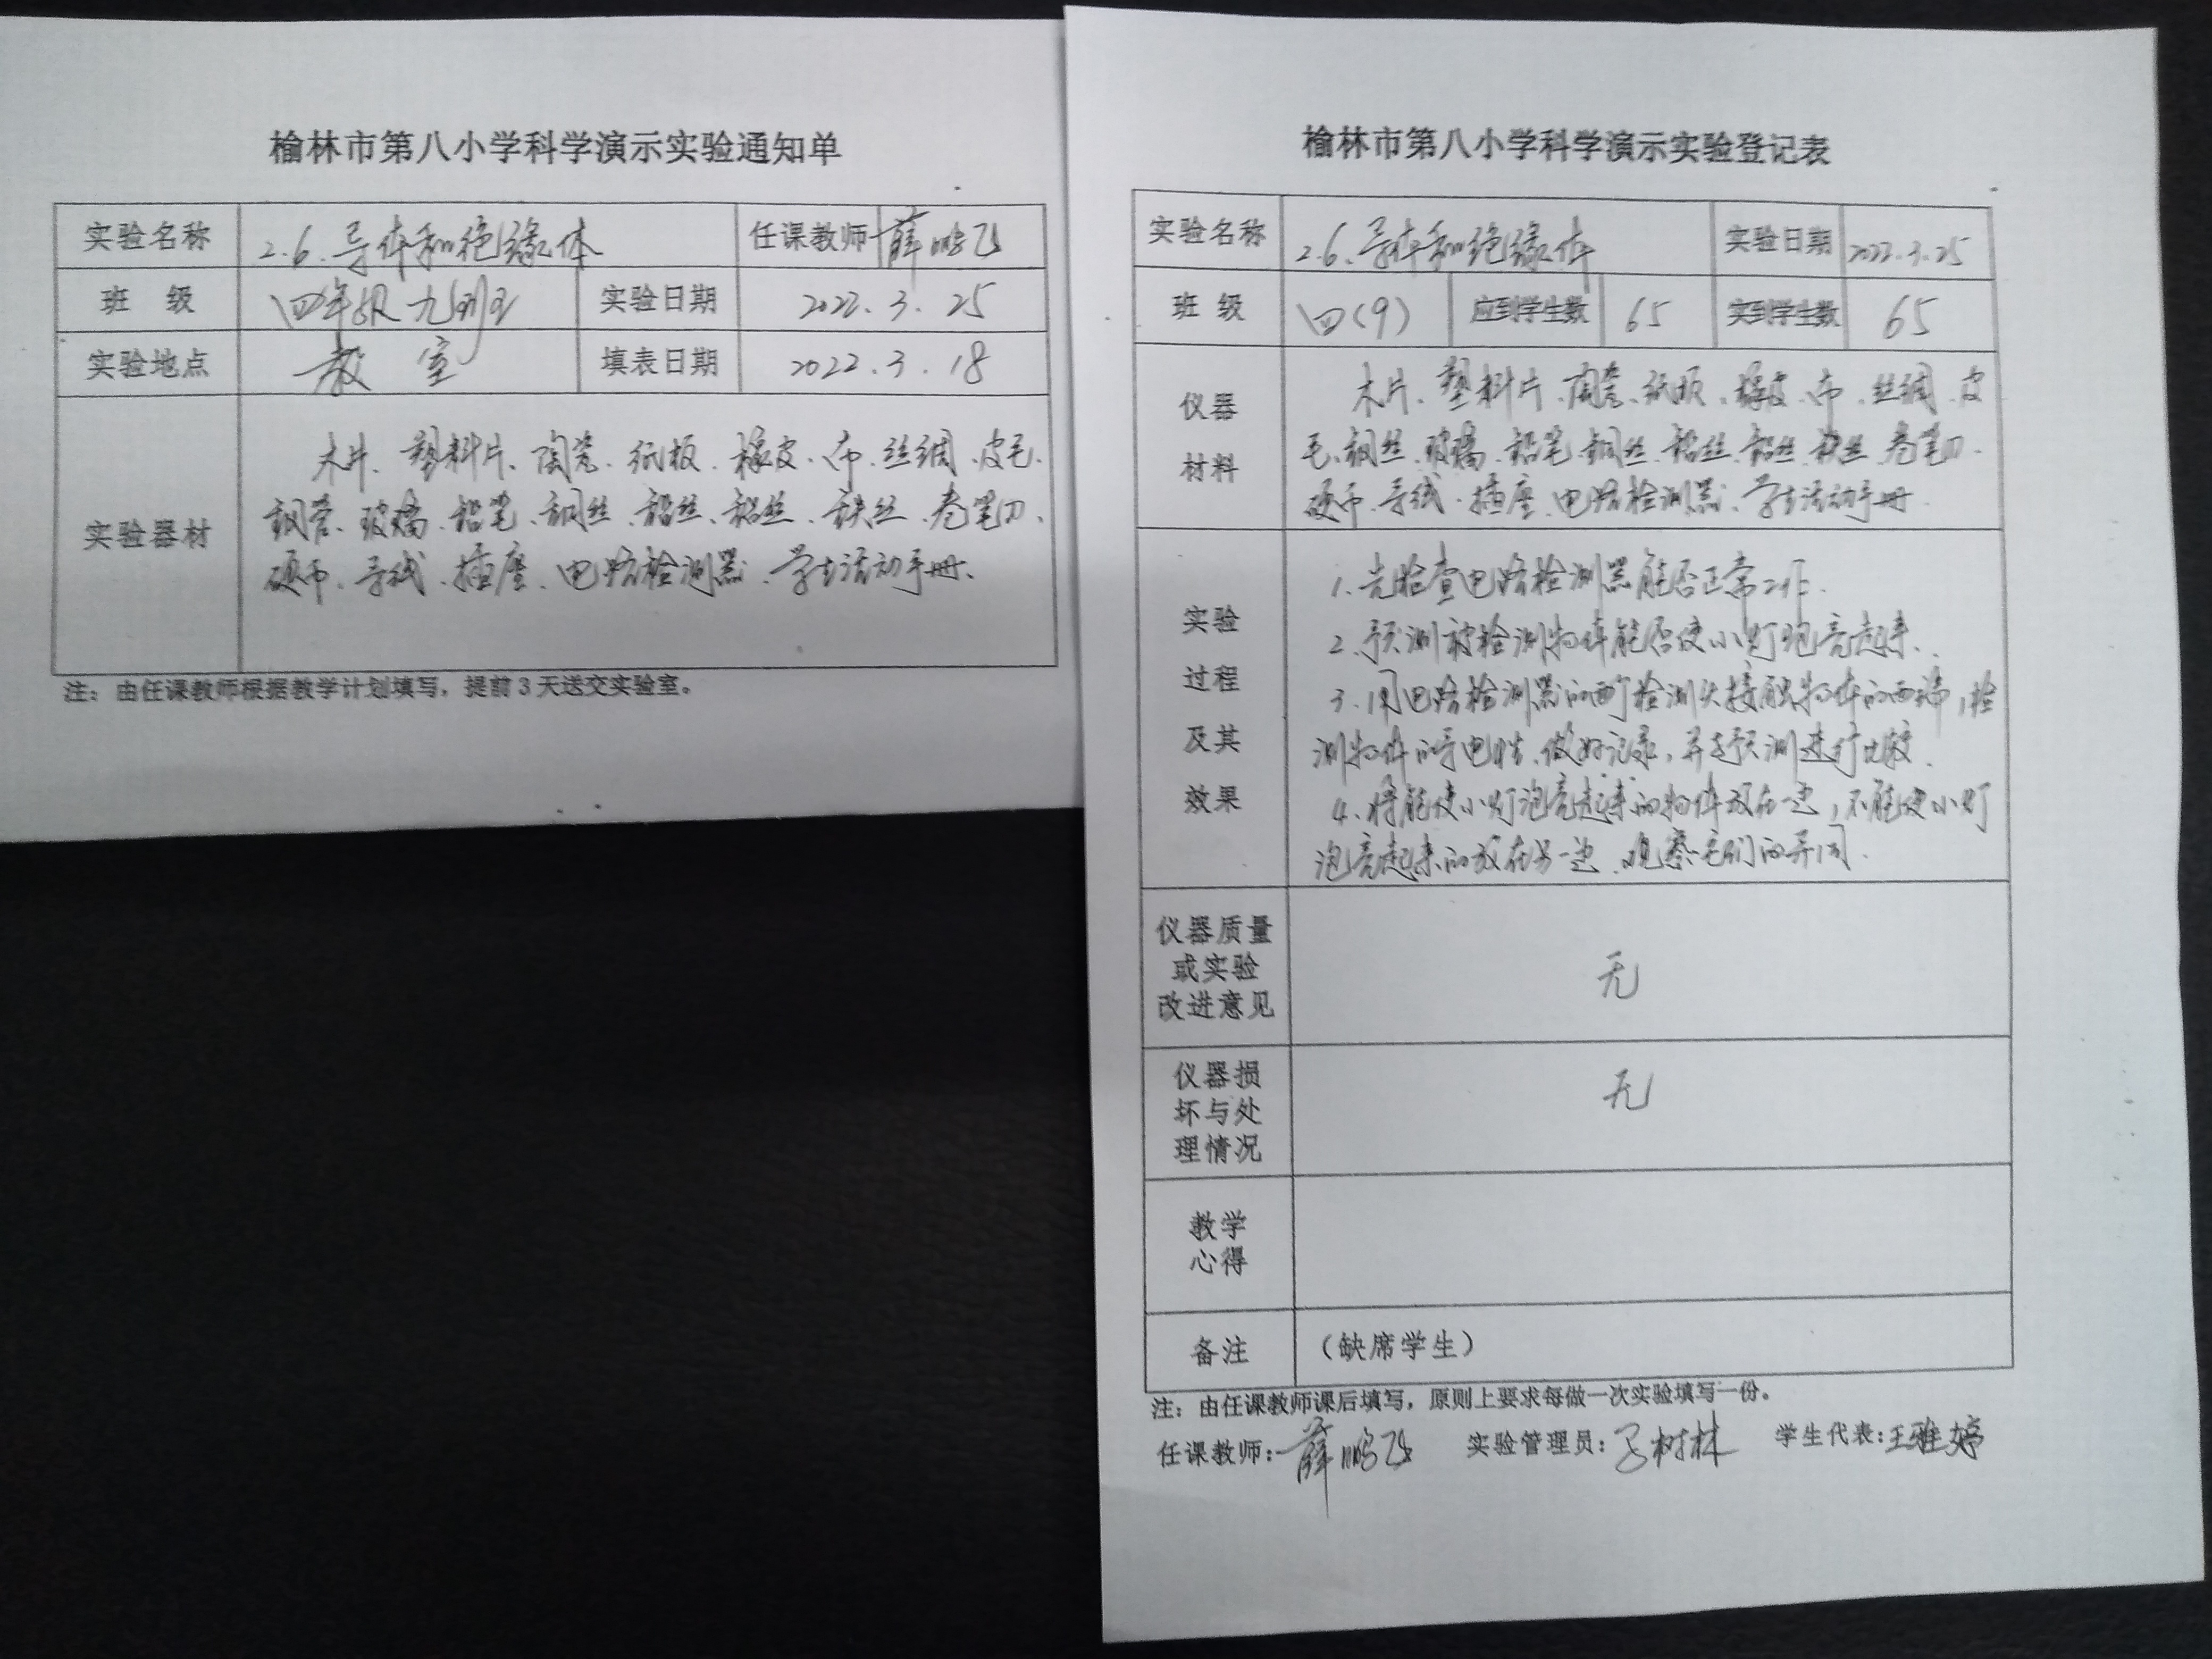 榆林市第八小学科学演示实验通知单
实验名称 2.6.导体和绝缘体 任课教师 薛鹏飞
班 级 四年级九班 实验日期 2022.3.25
实验地点 教室 填表日期 2022.3.18
实验器材
木片、塑料片、陶瓷、纸板、橡皮、布、丝绸、皮毛、
钢管、玻璃、铅笔、铜丝、铅丝、铝丝、铁丝、卷笔刀、
硬币、导线、插座、电路检测器、学生活动手册、
注：由任课教师根据教学计划填写，提前3天送交实验室。
榆林市第八小学科学演示实验登记表
实验名称 2.6.导体和绝缘体 实验日期 2022.3.25
班 级 四(9) 应到学生数 65 实到学生数 65
仪器
材料
木片、塑料片、陶瓷、纸板、橡皮、布、丝绸、皮
毛、玻璃、铅笔、铜丝、铅丝、铝丝、铁丝、卷笔刀、
硬币、导线、插座、电路检测器、学生活动手册.
实验
过程
及其
效果
1.先检查电路检测器能否正常工作.
2.预测被检测物体能否使小灯泡亮起来.
3.用电路检测器的两个检测头接触物体的两端，检
测物体的导电性、做好记录，并与预测进行比较.
4.将能使小灯泡亮起来的物体放在一边，不能使小灯
泡亮起来的放在另一边、观察它们的异同.
仪器质量
或实验
改进意见
无
仪器损
坏与处
理情况
无
教学
心得
备注 （缺席学生）
注：由任课教师课后填写，原则上要求每做一次实验填写一份。
任课教师：薛鹏飞 实验管理员：树林 学生代表：王雅婷